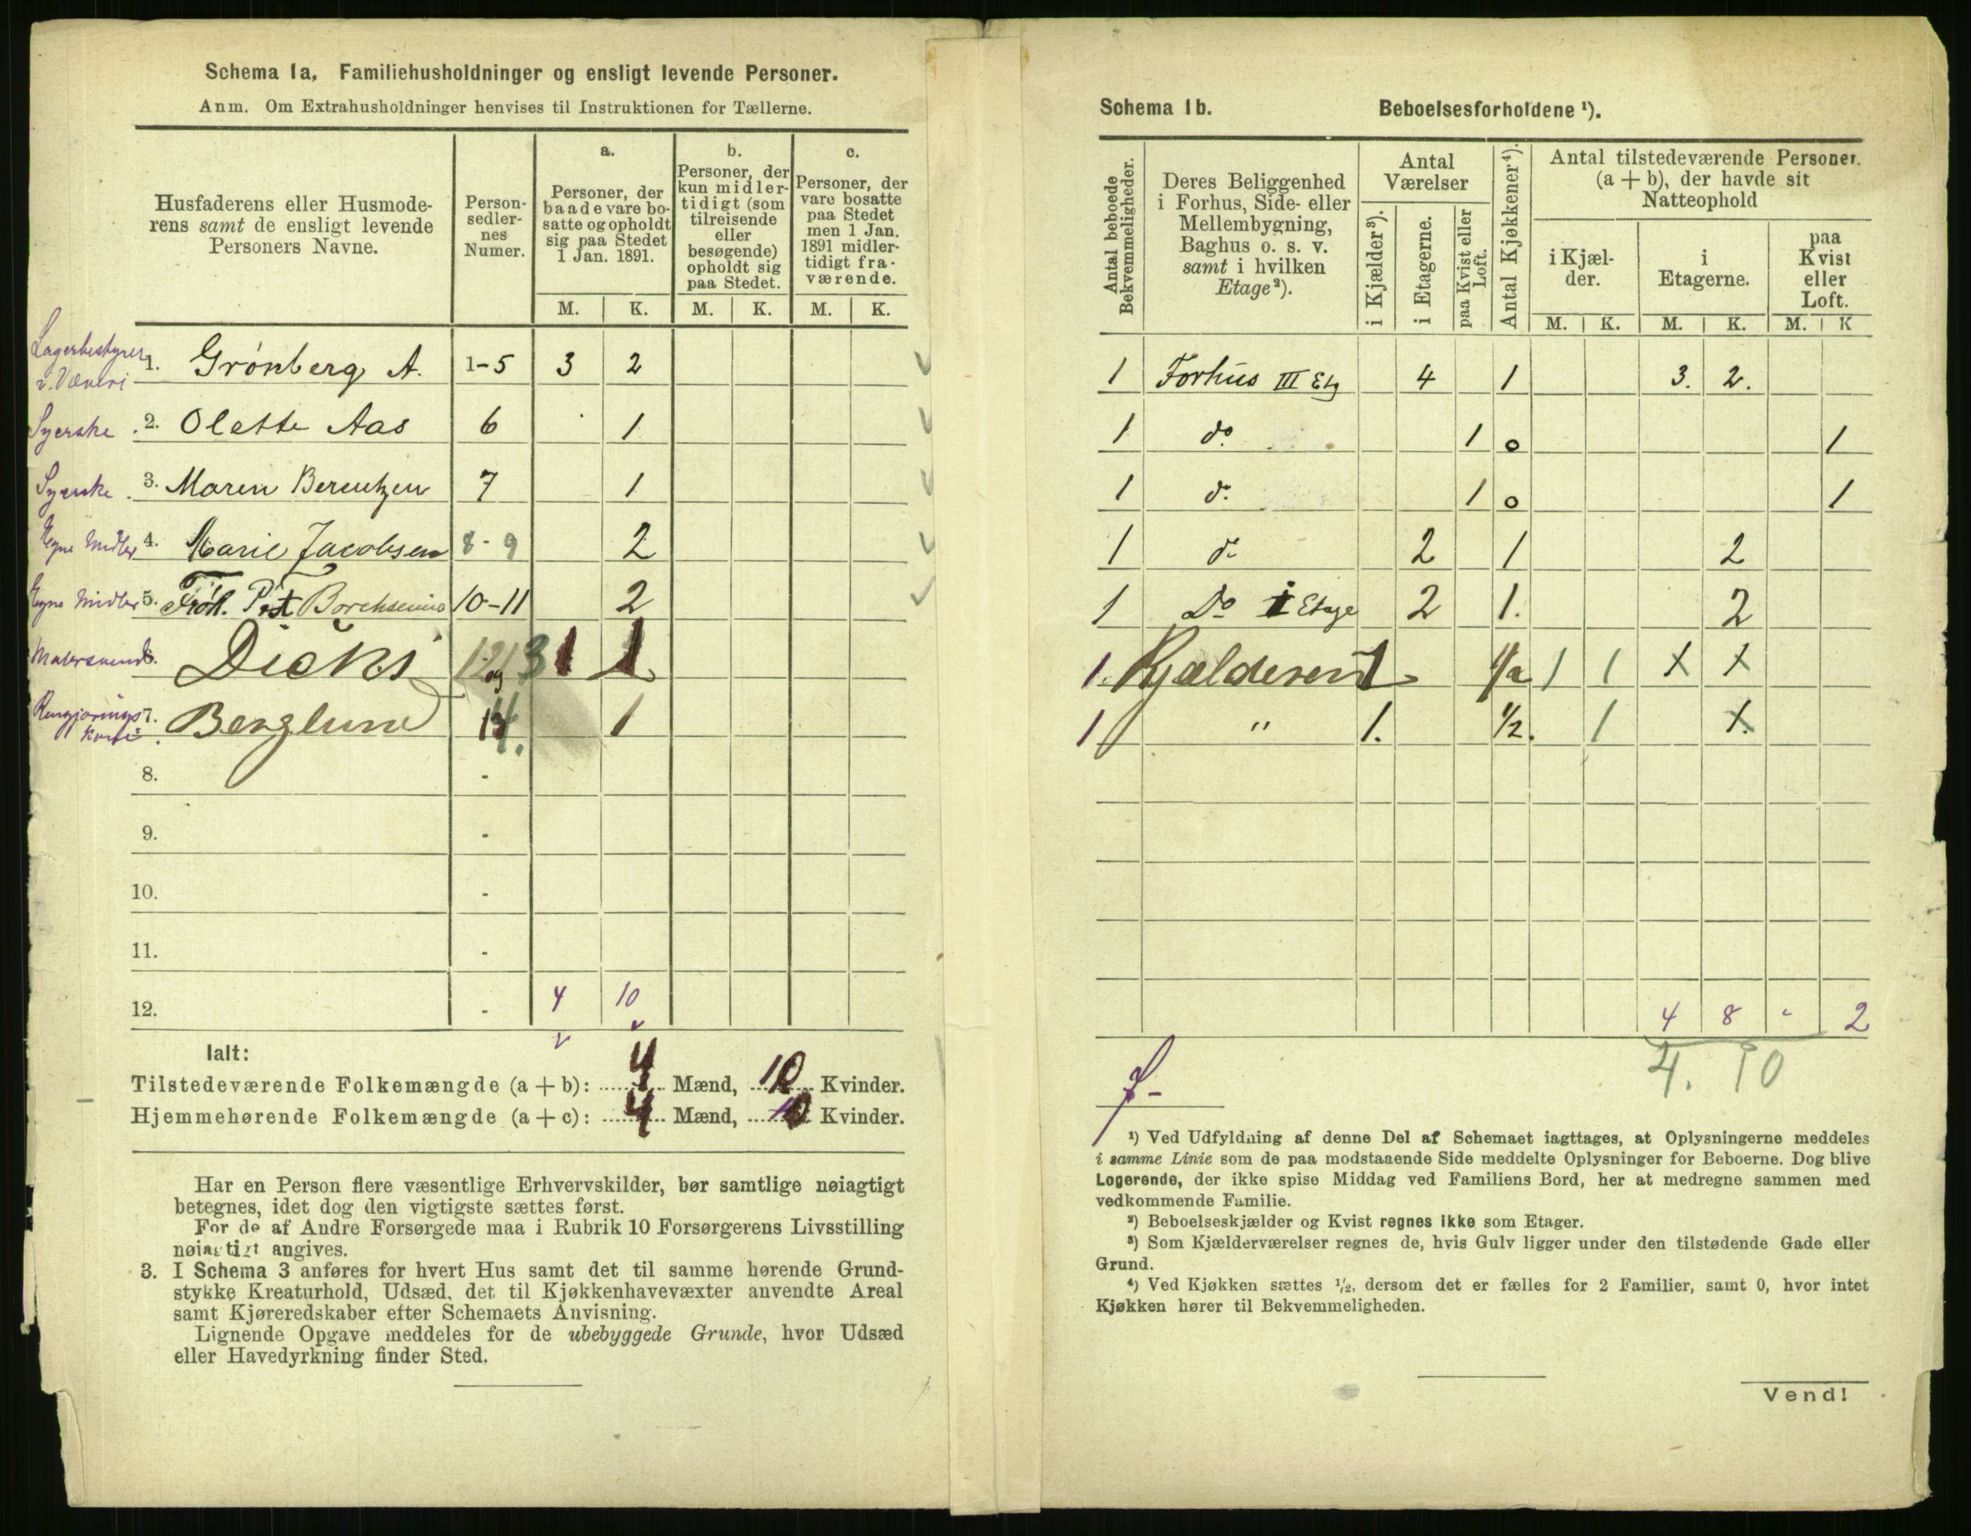 Schema 1a, Familiehusholdninger og ensligt levende Personer.
Anm. Om Extrahusholdninger henvises til Instruktionen for Tællerne.
Husfaderens eller Husmode-
rens samt de ensligt levende
Personers Navne.
Person-
sedler-
nes
Numer.
a.
Personer, der
baade vare bo-
satte og opholdt
sig paa Stedet
1 Jan. 1891.
b.
Personer, der
kun midler-
tidigt (som
tilreisende
eller
besøgende)
opholdt sig
paa Stedet.
c.
Personer, der
vare bosatte
paa Stedet
men 1 Jan.
1891 midler-
tidigt fra-
værende.
M. K. M. K. M. K.
Lagerbestyrer
v. Væveri
1. Grønberg A. 1-5 3 2
Syerske 2. Olette Aas 6 1
Syerske 3. Maren Berentzen 7 1
Egne Midler 4. Marie Jacobsen 8-9 2
Egne Midler 5. Frøk. Borchsenius 10-11 2
Malersvend 6. Dicks 12 og 13 1 1
Rengjørings
kone
7. Berglund 14. 1
8. -
9. -
10. -
11. -
12. - 4 10
Ialt:
Tilstedeværende Folkemængde (a + b): 4 Mænd, 10 Kvinder.
Hjemmehørende Folkemængde (a + c): 4 Mænd, 10 Kvinder.
Har en Person flere væsentlige Erhvervskilder, bør samtlige nøiagtigt
betegnes, idet dog den vigtigste sættes først.
For de af Andre Forsørgede maa i Rubrik 10 Forsørgerens Livsstilling
nøiagtigt angives.
3. I Schema 3 anføres for hvert Hus samt det til samme hørende Grund-
stykke Kreaturhold, Udsæd, det til Kjøkkenhavevæxter anvendte Areal
samt Kjøreredskaber efter Schemaets Anvisning.
Lignende Opgave meddeles for de ubebyggede Grunde, hvor Udsæd
eller Havedyrkning finder Sted.
Schema 1b. Beboelsesforholdene ¹).
Antal beboede
Bekvemmeligheder.
Deres Beliggenhed
i Forhus, Side- eller
Mellembygning,
Baghus o. s. v.
samt i hvilken
Etage ²).
Antal
Værelser
i Kjælder ³).
i Etagerne.
paa Kvist eller
Loft.
Antal Kjøkkener ⁴).
Antal tilstedeværende Personer.
(a + b), der havde sit
Natteophold
i Kjæl-
der.
i
Etagerne.
paa
Kvist
eller
Loft.
M. K. M. K. M. K
1 Forhus III Etg 4 1 3. 2.
1 do. 1 0 1
1 do. 1 0 1
1 do. 2 1 2
1 Do 1 Etage 2 1. 2
1. Kjælderen 1 1/2 1 1 x x
1 " 1. 1/2. 1 x
4 8 - 2
4. 10
7-
¹) Ved Udfyldning af denne Del af Schemaet iagttages, at Oplysningerne meddeles
i samme Linie som de paa modstaaende Side meddelte Oplysninger for Beboerne. Dog blive
Logerende, der ikke spise Middag ved Familiens Bord, her at medregne sammen med
vedkommende Familie.
²) Beboelseskjælder og Kvist regnes ikke som Etager.
³) Som Kjælderværelser regnes de, hvis Gulv ligger under den tilstødende Gade eller
Grund.
⁴) Ved Kjøkken sættes ¹/₂, dersom det er fælles for 2 Familier, samt 0, hvor intet
Kjøkken hører til Bekvemmeligheden.
Vend!